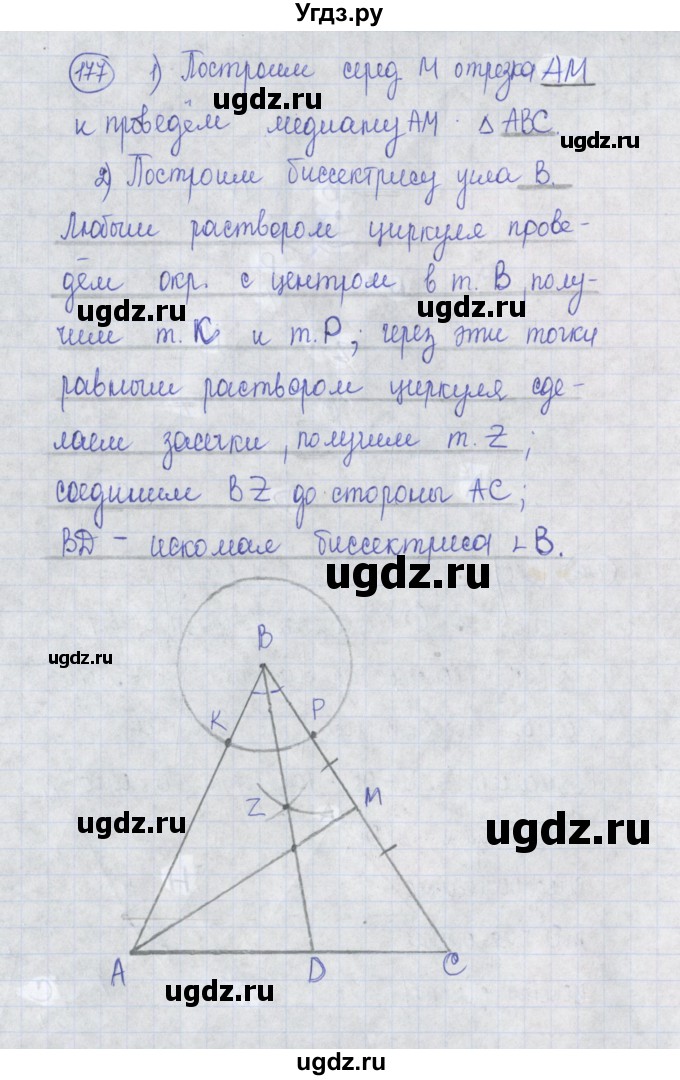 Угдз.ру
177 1) Построим серед М отрезка АМ
ugdz.ru
и проведём медиану АМ. △ АВС.
ugdz.ru
2) Построим биссектрису угла В.
Любым раствором циркуля прове-
дём окр. с центром в т. В, полу-
ugdz.ru
ugdz.ru
чим т. К и т. Р; через эти точки
равным раствором циркуля сде-
лаем засечки, получим т. Z;
соединим BZ до стороны АС;
BD – искомая биссектриса ∟В.
ugdz.ru
B
ugdz.ru
K P
Z M
ugdz.ru
ugdz.ru
A D C
ugdz.ru
ugdz.ru